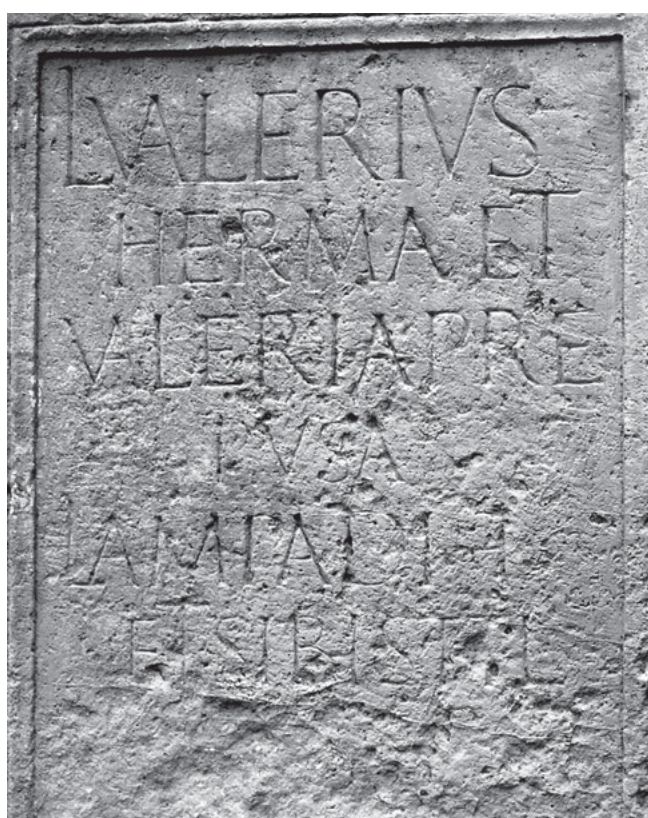 L VALERIVS
HERMA ET
VALERIA PRE
PVSA
LAMPADI
ET SIBI